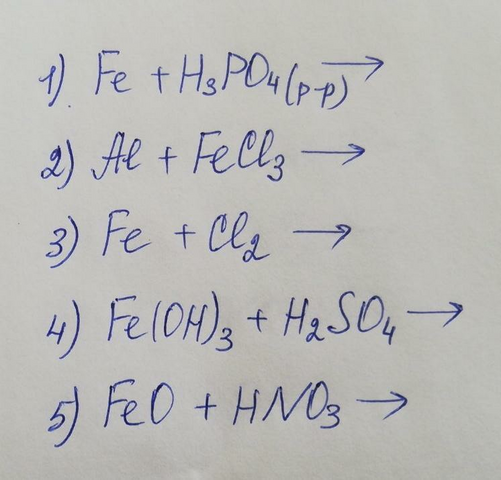 1) Fe + H₃PO₄(р-р) →
2) Al + FeCl₃ →
3) Fe + Cl₂ →
4) Fe(OH)₃ + H₂SO₄ →
5) FeO + HNO₃ →